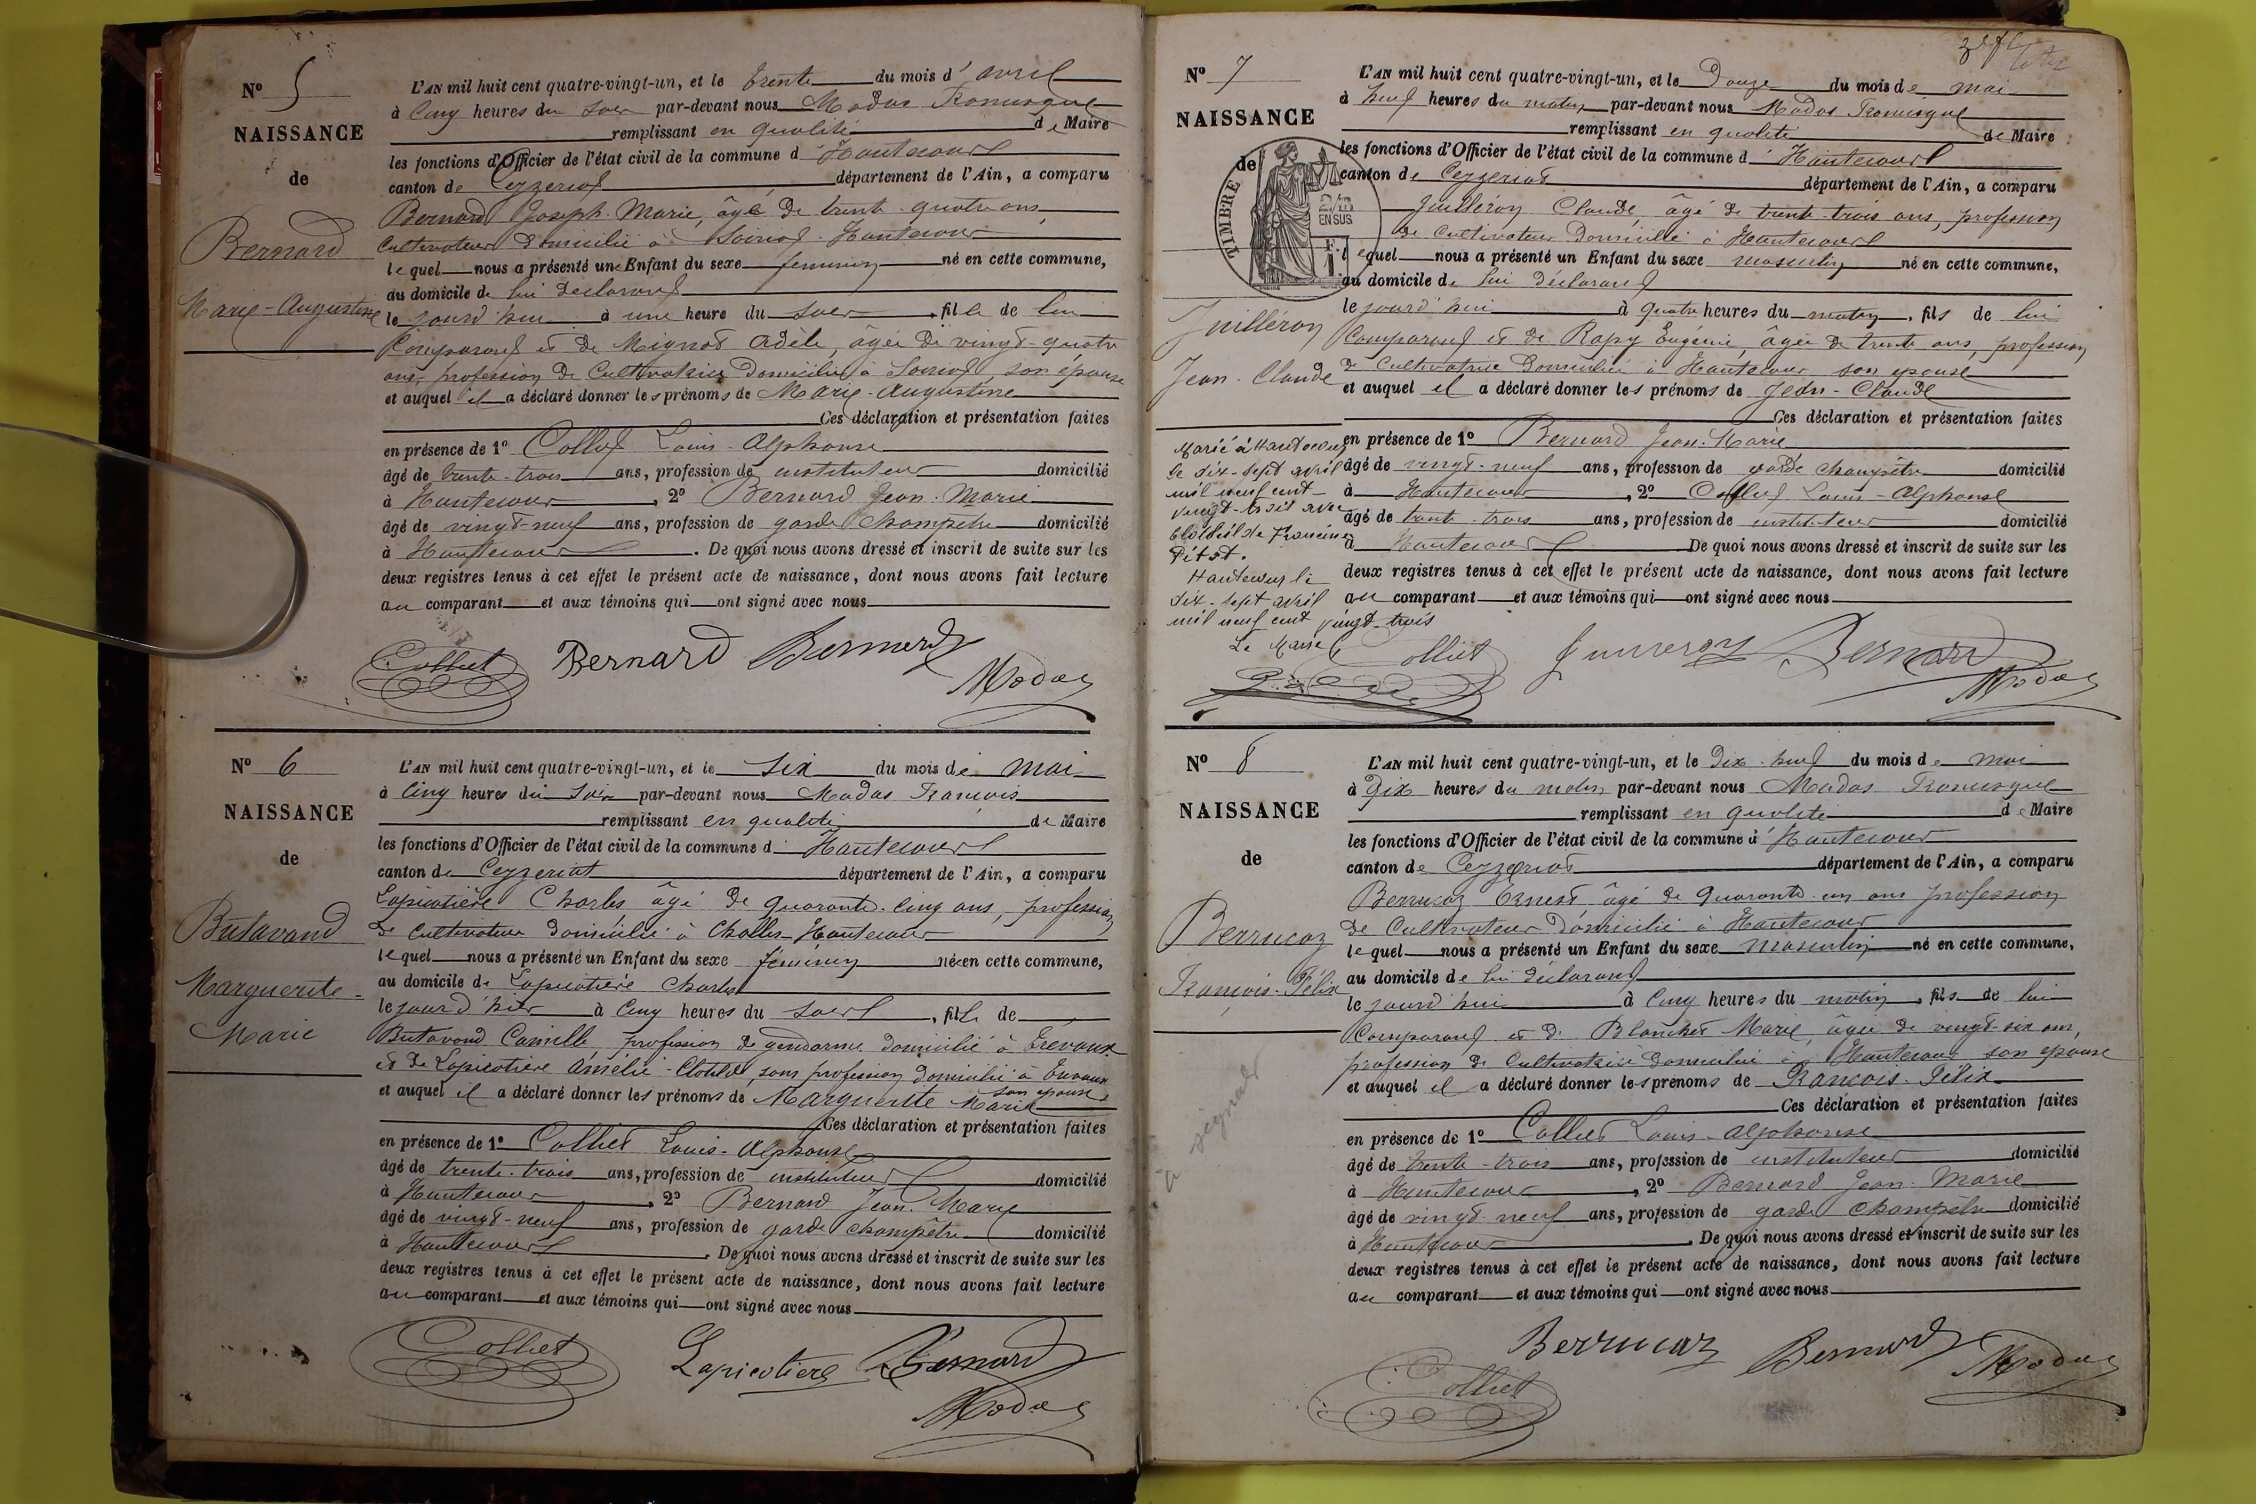 N° 5
NAISSANCE
de
Bernard
Marie-Augustine
L'AN mil huit cent quatre-vingt-un, et le trente du mois d'avril
à cinq heures du soir par-devant nous Modas
remplissant en qualité de Maire
les fonctions d'Officier de l'état civil de la commune d'Hautecourt
canton de Ceyzeriat département de l'Ain, a comparu
Bernard Joseph-Marie, âgé de trente-quatre ans,
Cultivateur domicilié à Hautecour
lequel nous a présenté une Enfant du sexe féminin né en cette commune,
au domicile de lui déclarant
le jourd'hui à une heure du soir, fille de lui
Comparant et de Mignot Adèle, âgée de vingt-quatre
ans, profession de Cultivatrice domiciliée à son épouse
et auquel il a déclaré donner les prénoms de Marie-Augustine
Ces déclaration et présentation faites
en présence de 1° Colliet Louis-Alphonse
âgé de trente-trois ans, profession de instituteur domicilié
à Hautecour, 2° Bernard Jean-Marie
âgé de vingt-neuf ans, profession de garde champêtre domicilié
à Hautecour. De quoi nous avons dressé et inscrit de suite sur les
deux registres tenus à cet effet le présent acte de naissance, dont nous avons fait lecture
au comparant et aux témoins qui ont signé avec nous
Colliet Bernard Bernard
Modas
N° 6
NAISSANCE
de
Butavand
Marguerite-
Marie
L'AN mil huit cent quatre-vingt-un, et le six du mois de mai
à cinq heures du soir par-devant nous Modas François
remplissant en qualité de Maire
les fonctions d'Officier de l'état civil de la commune d'Hautecourt
canton de Ceyzeriat département de l'Ain, a comparu
Lapicotière Charles âgé de quarante-cinq ans, profession
de cultivateur domicilié à Challes-Hautecour
lequel nous a présenté un Enfant du sexe féminin née en cette commune,
au domicile de Lapicotière Charles
le jour d'hier à cinq heures du soir, fille de
Butavand Camille, profession de gendarme domicilié à Trévoux
et de Lapicotière Amélie-Clotilde, sans profession domiciliée à Trévoux
son épouse
et auquel il a déclaré donner les prénoms de Marguerite Marie
Ces déclaration et présentation faites
en présence de 1° Colliet Louis-Alphonse
âgé de trente-trois ans, profession de instituteur domicilié
à Hautecour, 2° Bernard Jean-Marie
âgé de vingt-neuf ans, profession de garde champêtre domicilié
à Hautecourt. De quoi nous avons dressé et inscrit de suite sur les
deux registres tenus à cet effet le présent acte de naissance, dont nous avons fait lecture
au comparant et aux témoins qui ont signé avec nous
Colliet Lapicotiere Bernard
Modas
N° 7
NAISSANCE
de
TIMBRE
2/10 EN SUS
Juilléron
Jean-Claude
L'AN mil huit cent quatre-vingt-un, et le Douze du mois de mai
à neuf heures du matin par-devant nous Modas
remplissant en qualité de Maire
les fonctions d'Officier de l'état civil de la commune d'Hautecourt
canton de Ceyzeriat département de l'Ain, a comparu
Juilleron Claude, âgé de trente-trois ans, profession
de Cultivateur domicilié à Hautecourt
lequel nous a présenté un Enfant du sexe masculin né en cette commune,
au domicile de lui déclarant
le jourd'hui à quatre heures du matin, fils de lui
Comparant et de Rapy Eugénie, âgée de trente ans, profession
de Cultivatrice domiciliée à Hautecour son épouse
et auquel il a déclaré donner les prénoms de Jean-Claude
Ces déclaration et présentation faites
en présence de 1° Bernard Jean-Marie
âgé de vingt-neuf ans, profession de garde champêtre domicilié
à Hautecour, 2° Colliet Louis-Alphonse
âgé de trente-trois ans, profession de instituteur domicilié
à Hautecour De quoi nous avons dressé et inscrit de suite sur les
deux registres tenus à cet effet le présent acte de naissance, dont nous avons fait lecture
au comparant et aux témoins qui ont signé avec nous
Marié à Hautecour
le dix-sept avril
mil neuf cent
vingt-trois avec
Francine
Pitot.
Hautecour le
dix-sept avril
mil neuf cent vingt-trois
Le Maire
Colliet Juilleron Bernard
Modas
N° 8
NAISSANCE
de
Berrucaz
François-Félix
à signaler
L'AN mil huit cent quatre-vingt-un, et le dix-neuf du mois de mai
à Dix heures du matin par-devant nous Modas
remplissant en qualité de Maire
les fonctions d'Officier de l'état civil de la commune d'Hautecour
canton de Ceyzeriat département de l'Ain, a comparu
Berrucaz Ernest âgé de quarante-un ans profession
de Cultivateur domicilié à Hautecour
lequel nous a présenté un Enfant du sexe masculin né en cette commune,
au domicile de lui déclarant
le jourd'hui à cinq heures du matin, fils de lui
Comparant et de Blanchet Marie, âgée de vingt-six ans,
profession de Cultivatrice domiciliée à Hautecour son épouse
et auquel il a déclaré donner les prénoms de François-Félix
Ces déclaration et présentation faites
en présence de 1° Colliet Louis-Alphonse
âgé de trente-trois ans, profession de instituteur domicilié
à Hautecour, 2° Bernard Jean-Marie
âgé de vingt-neuf ans, profession de garde champêtre domicilié
à Hautecour. De quoi nous avons dressé et inscrit de suite sur les
deux registres tenus à cet effet le présent acte de naissance, dont nous avons fait lecture
au comparant et aux témoins qui ont signé avec nous
Berrucaz Bernard Modas
Colliet